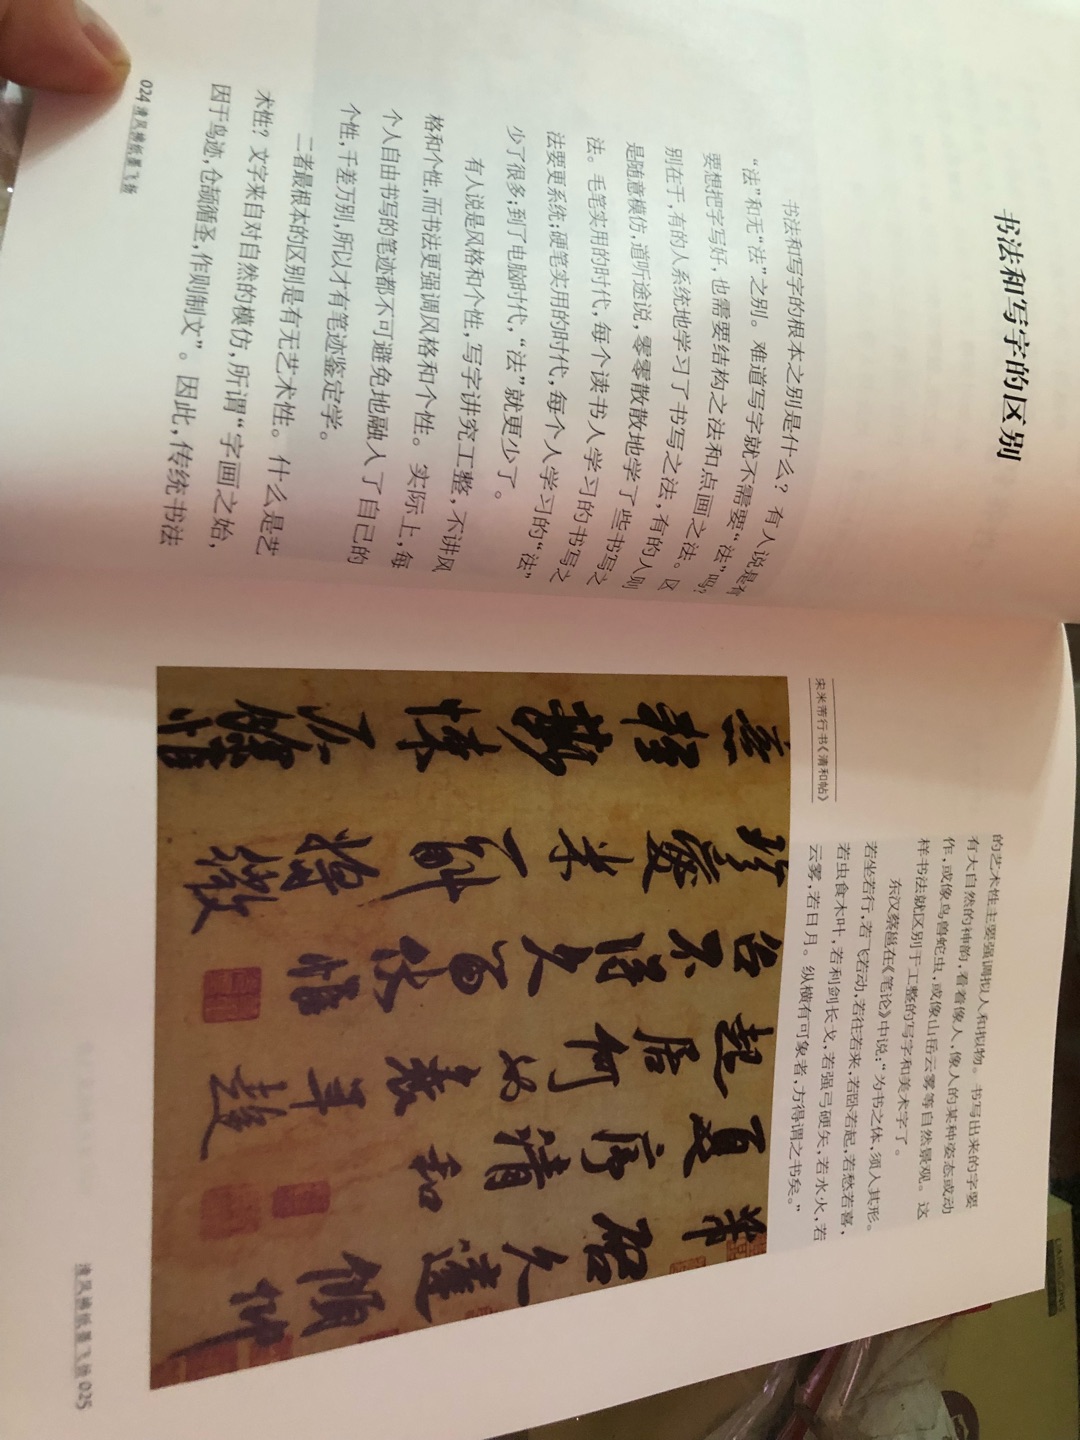 书法和写字的区别
书法和写字的根本之别是什么?有人说是有
“法”和无“法”之别。难道写字就不需要“法”吗?
要想把字写好,也需要结构之法和点画之法。区
别在于,有的人系统地学习了书写之法,有的人则
是随意模仿,道听途说,零零散散地学了些书写之
法。毛笔实用的时代,每个读书人学习的书写之
法要更系统;硬笔实用的时代,每个人学习的“法”
少了很多;到了电脑时代,“法”就更少了。
有人说是风格和个性,写字讲究工整,不讲风
格和个性,而书法更强调风格和个性。实际上,每
个人自由书写的笔迹都不可避免地融入了自己的
个性,千差万别,所以才有笔迹鉴定学。
二者最根本的区别是有无艺术性。什么是艺
术性?文字来自对自然的模仿,所谓“字画之始,
因于鸟迹,仓颉循圣,作则制文”。因此,传统书法
024 清风拂纸墨飞扬
的艺术性主要强调拟人和拟物。书写出来的字要
有大自然的神韵,看着像人,像人的某种姿态或动
作,或像鸟兽蛇虫,或像山岳云雾等自然景观。这
样书法就区别于工整的写字和美术字了。
东汉蔡邕在《笔论》中说:“为书之体,须入其形。
若坐若行,若飞若动,若往若来,若卧若起,若愁若喜,
若虫食木叶,若利剑长戈,若强弓硬矢,若水火,若
云雾,若日月。纵横有可象者,方得谓之书矣。”
宋米芾行书《清和帖》
芾启久違傾仰
夏序清和
起居何如衰年趨
召不得久留伏惟
珍愛米一斛将微
意輕尠悚仄
清风拂纸墨飞扬 025